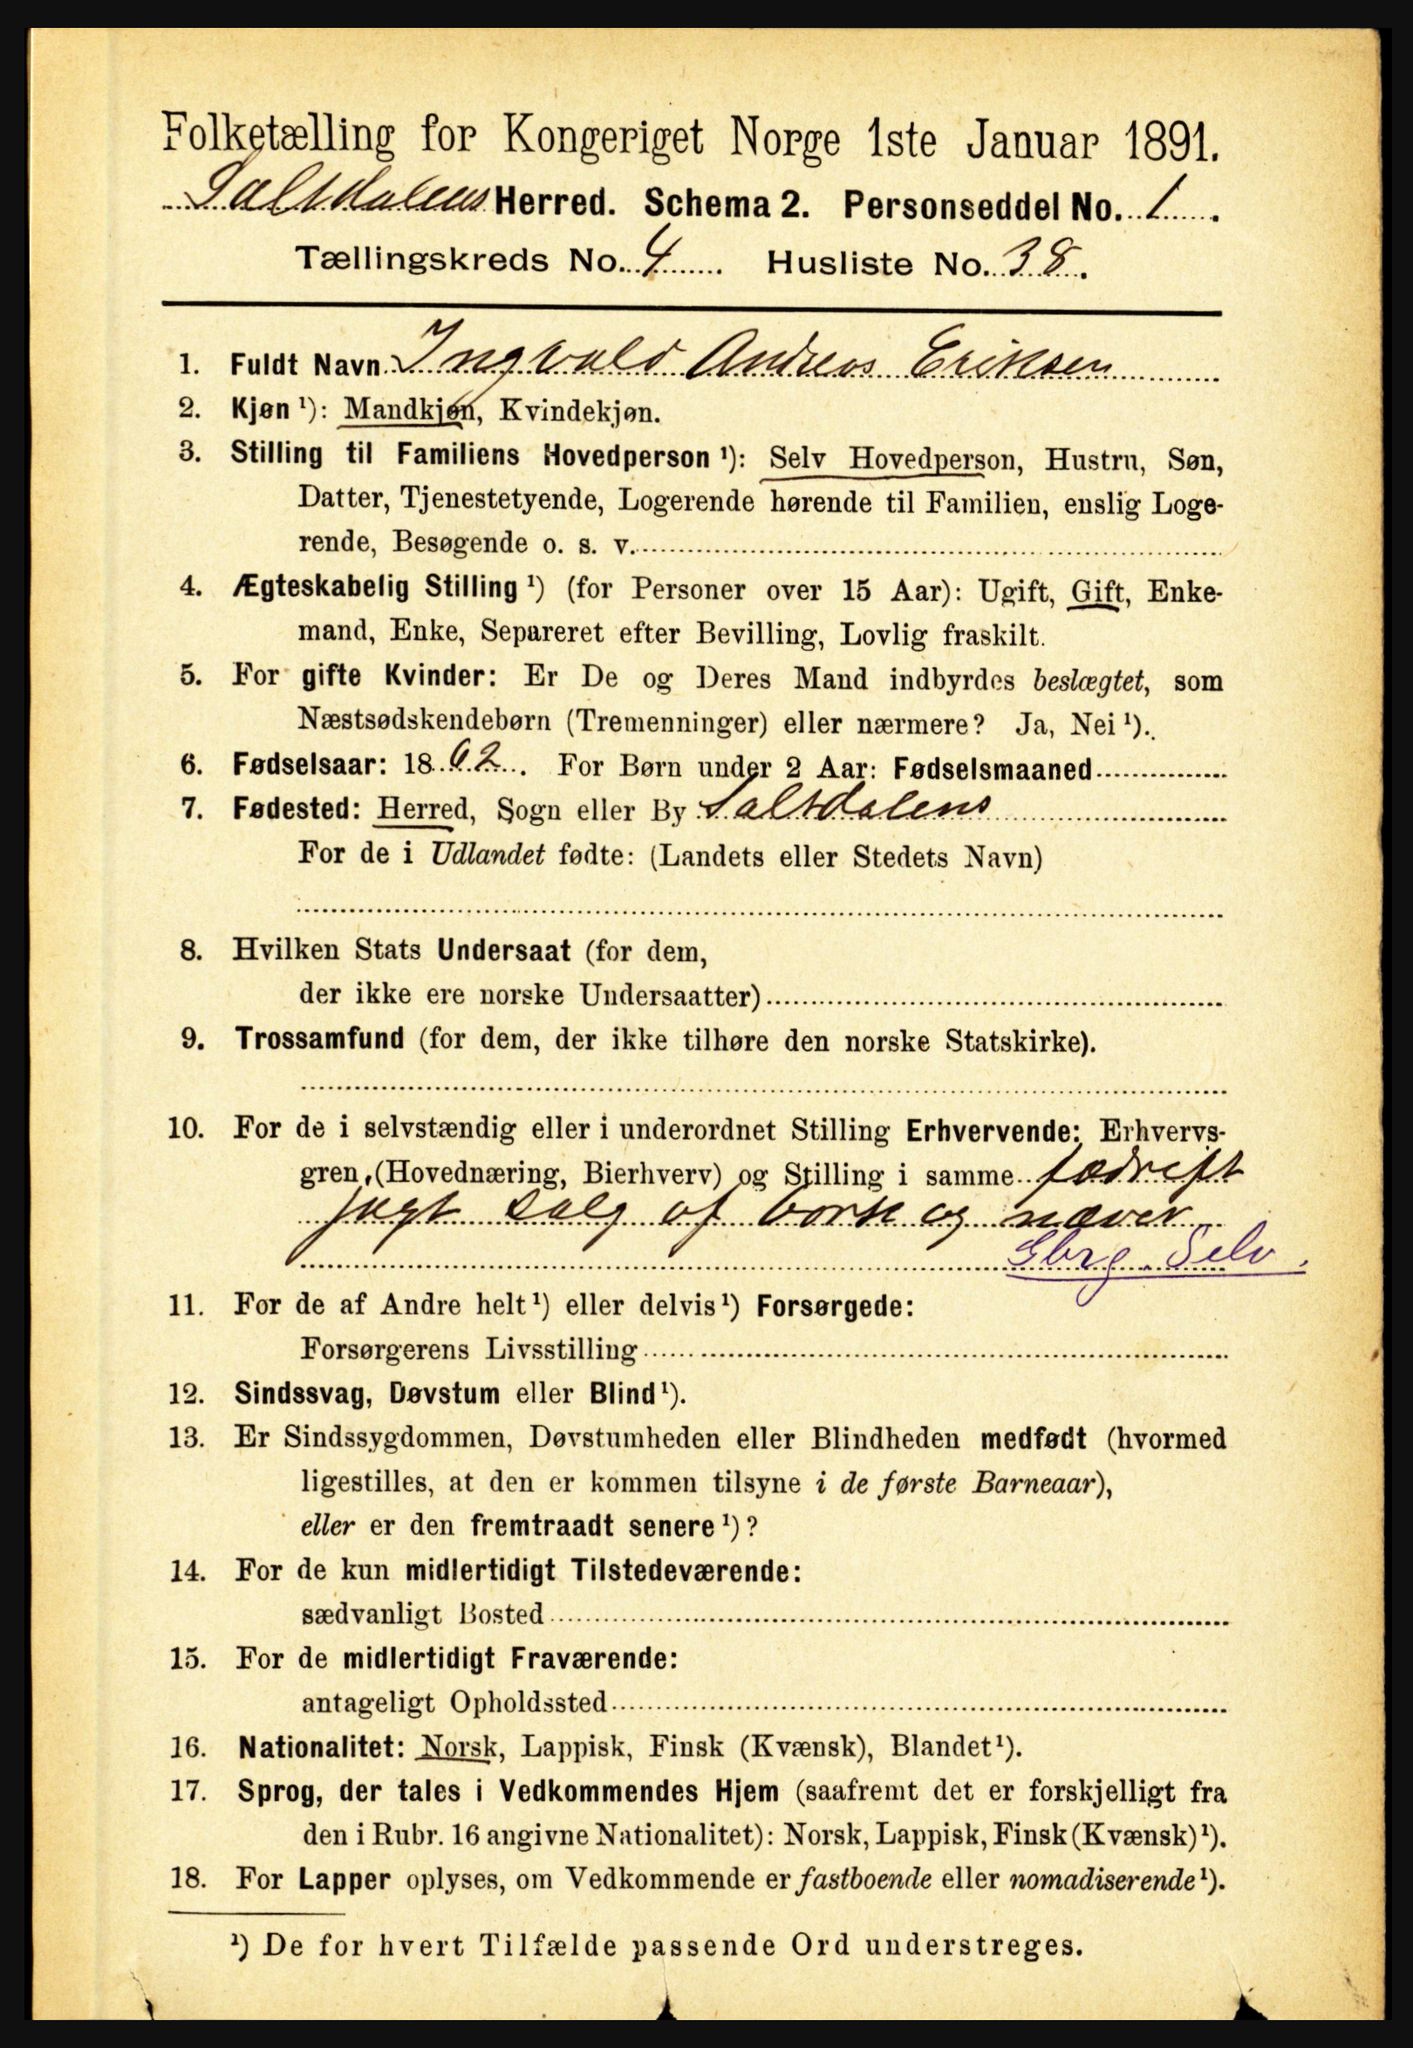 Folketælling for Kongeriget Norge 1ste Januar 1891.
Saltdalens Herred. Schema 2. Personseddel No. 1.
Tællingskreds No. 4 Husliste No. 38.
1. Fuldt Navn Ingvald Andreas Eriksen
2. Kjøn¹): Mandkjøn, Kvindekjøn.
3. Stilling til Familiens Hovedperson¹): Selv Hovedperson, Hustru, Søn,
Datter, Tjenestetyende, Logerende hørende til Familien, enslig Loge-
rende, Besøgende o. s. v.
4. Ægteskabelig Stilling¹) (for Personer over 15 Aar): Ugift, Gift, Enke-
mand, Enke, Separeret efter Bevilling, Lovlig fraskilt.
5. For gifte Kvinder: Er De og Deres Mand indbyrdes beslægtet, som
Næstsødskendebørn (Tremenninger) eller nærmere? Ja, Nei¹).
6. Fødselsaar: 1862. For Børn under 2 Aar: Fødselsmaaned
7. Fødested: Herred, Sogn eller By Saltdalens
For de i Udlandet fødte: (Landets eller Stedets Navn)
8. Hvilken Stats Undersaat (for dem,
der ikke ere norske Undersaatter)
9. Trossamfund (for dem, der ikke tilhøre den norske Statskirke).
10. For de i selvstændig eller i underordnet Stilling Erhvervende: Erhvervs-
gren (Hovednæring, Bierhverv) og Stilling i samme fædrift
jagt salg af bork og næver
Gbrg. Selv.
11. For de af Andre helt¹) eller delvis¹) Forsørgede:
Forsørgerens Livsstilling
12. Sindssvag, Døvstum eller Blind¹).
13. Er Sindssygdommen, Døvstumheden eller Blindheden medfødt (hvormed
ligestilles, at den er kommen tilsyne i de første Barneaar),
eller er den fremtraadt senere¹)?
14. For de kun midlertidigt Tilstedeværende:
sædvanligt Bosted
15. For de midlertidigt Fraværende:
antageligt Opholdssted
16. Nationalitet: Norsk, Lappisk, Finsk (Kvænsk), Blandet¹).
17. Sprog, der tales i Vedkommendes Hjem (saafremt det er forskjelligt fra
den i Rubr. 16 angivne Nationalitet): Norsk, Lappisk, Finsk (Kvænsk)¹).
18. For Lapper oplyses, om Vedkommende er fastboende eller nomadiserende¹).
¹) De for hvert Tilfælde passende Ord understreges.